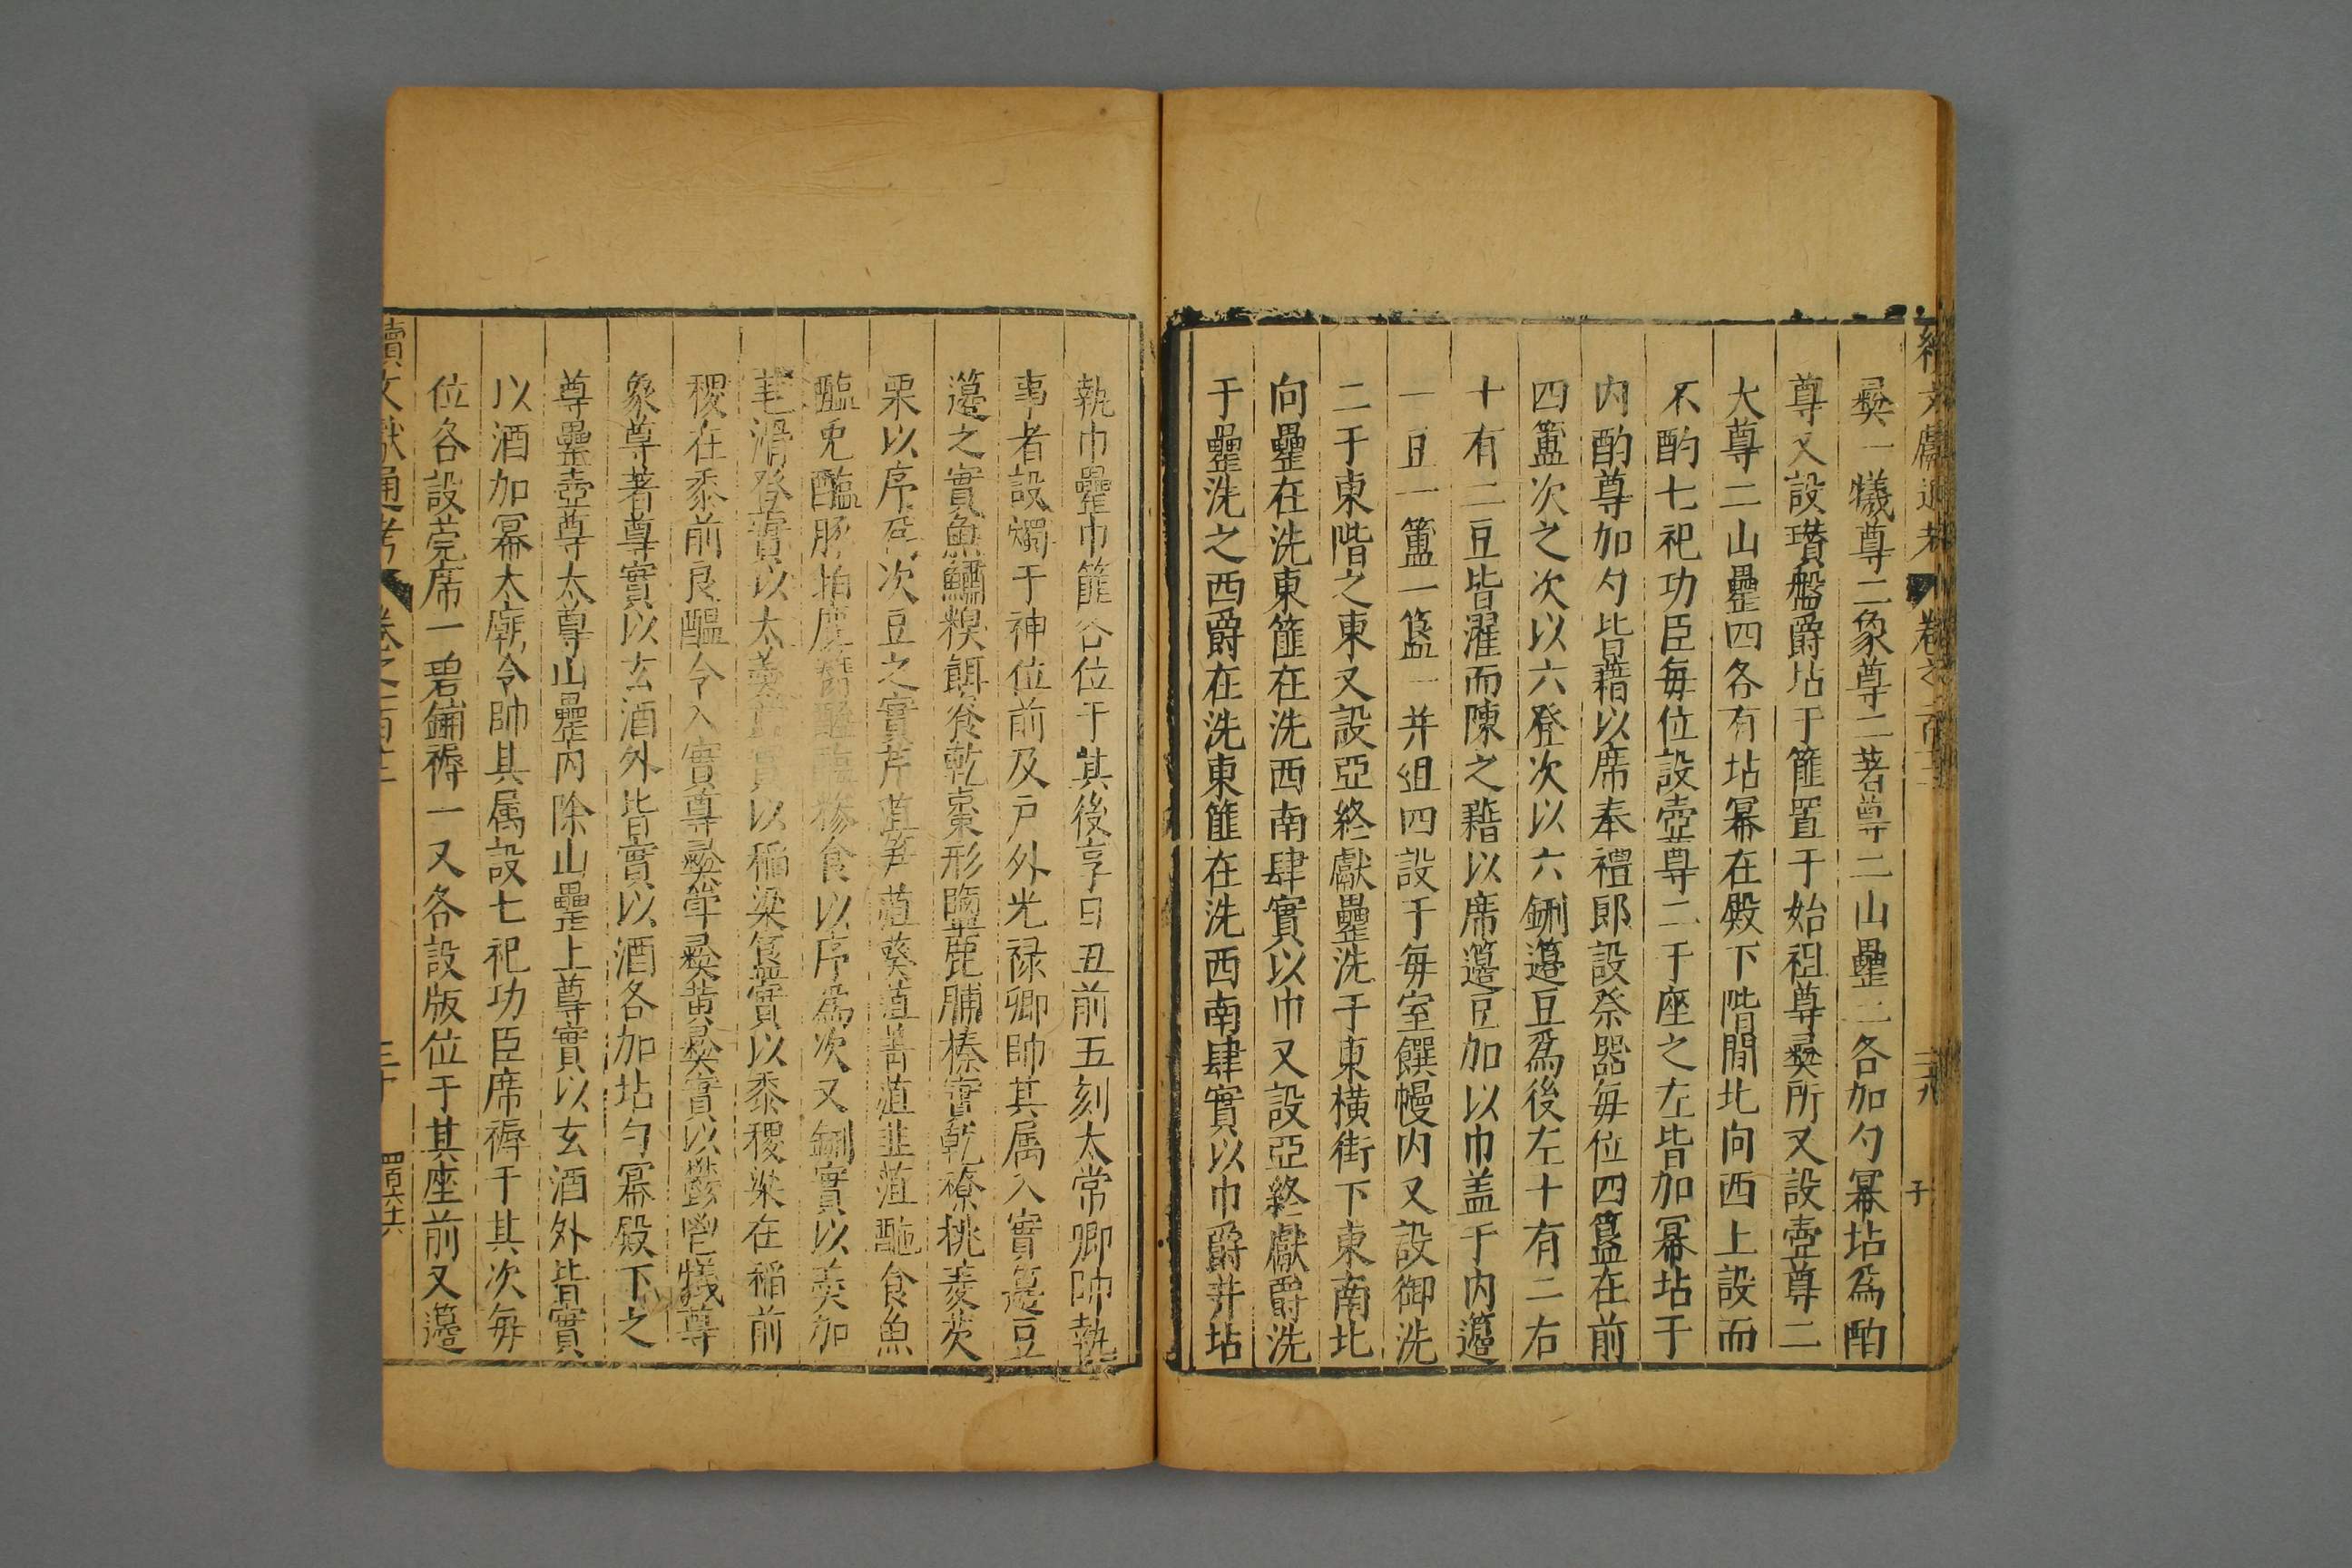 彛一犧尊二象尊二著尊二山罍二各加勺冪坫爲酌
尊又設瓚盤爵坫于篚置于始祖尊彛所又設壺尊二
大尊二山罍四各有坫冪在殿下階間北向西上設而
不酌七祀功臣每位設壺尊二于座之左皆加冪坫于
內酌尊加勺皆藉以席奉禮郎設祭器每位四簋在前
四簠次之次以六登次以六鉶籩豆爲後左十有二右
十有二豆皆濯而陳之藉以席籩豆加以巾盖于内籩
一豆一簠一簋一并俎四設于每室饌幔内又設御洗
二于東階之東又設亞終獻罍洗于東横街下東南北
向罍在洗東篚在洗西南肆實以巾又設亞終獻爵洗
于罍洗之西爵在洗東篚在洗西南肆實以巾爵并坫
執巾罍巾篚各位于其後享日丑前五刻太常卿帥執
事者設燭于神位前及戸外光禄卿帥其属入實籩豆
籩之實魚鱐糗餌粢食乾棗形鹽鹿脯榛實乾䕩桃菱芡
栗以序爲次豆之實芹菹笋菹葵菹菁菹韭菹酏食魚
醢兎醢豚拍鹿臡醓醢糝食以序爲次又鉶實以羹加
芼滑登實以太羹簠實以稲粱簋實以黍稷粱在稲前
稷在黍前良醖令入實尊彛斝彛黄彛實以欎鬯犧尊
象尊著尊實以玄酒外皆實以酒各加坫勺冪殿下之
尊罍壺尊太尊山罍内除山罍上尊實以玄酒外皆實
以酒加冪太廟令帥其属設七祀功臣席褥于其次每
位各設莞席一碧鋪褥一又各設版位于其座前又籩
續文獻通考 卷之一百三 三十 四百六十六